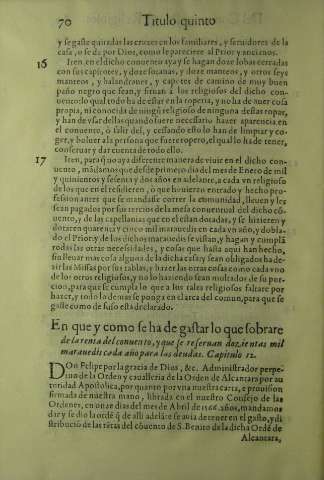 70 Titulo quinto
y se gaste quitadas las creces en los familiares, y seruidores de la
casa, o se da por Dios, como le pareciere al Prior y ancianos.
16 Iten, en el dicho conuento aya y se hagan doze lobas cerradas
con sus capirotes, y doze sotanas, y doze manteos, y otros seys
manteos, y balandranes, y capotes de camino de muy buen
paño negro que sean, y siruan a los religiosos del dicho conuento:
lo qual todo ha de estar en la roperia, y no ha de auer cosa
propia, ni conocida de ningũ religioso de ninguna destas ropas,
y han de vsar dellas quando fuere necessario hazer ausencia en
el conuento, ò salir del, y cessando esto lo han de limpiar y coger,
y boluer a la persona que fuere ropero, el qual lo ha de tener,
conseruar y dar cuenta de todo ello.
17 Iten, para q̃ no aya diferente manera de viuir en el dicho conuento,
mãdamos que desde primero dia del mes de Enero de mil
y quinientos y sesenta y dos años en adelante, a cada vn religioso
de los que en el residieren, o que huuieren entrado y hecho profession
antes que se mandasse correr la comunidad, lleuen y les
sean pagados por sus tercios de la mesa conuentual del dicho conuento,
y de las capellanias que en el estan dotadas, y se hizieren y
dotaren quarenta y cinco mil marauedis en cada vn año,
el Prior, y de los dichos marauedis se vistan, y hagan y cumplã
todas las otras necessidades, y cosas que hasta aqui han hecho,
sin lleuar mas cosa alguna de la dicha casa y sean obligados
las Missas por sus tablas, y hazer las otras cosas como cada vno
de los otros religiosos, y no lo haziendo sean de su porcion,
para que se cumpla lo que a los tales religiosos faltare por
hazer, y todo lo demas se ponga en el arca del comun, para que se
gaste como de suso està declarado.
En que y como se ha de gastar lo que sobrare
de la renta del conuento, y que se reseruan dozientas mil
marauedis cada año para las deudas. Capitulo 12.
DOn Felipe por la gracia de Dios, &c. Administrador perpetuo
de la Orden y caualleria de la Orden de Alcantara por autoridad
Apostolica, por quanto por vna nuestra carta, e prouission
firmada de nuestra mano, librada en nuestro Consejo de las
Ordenes, en onze dias del mes de Abril de años, mandamos
dar y se dio la ordẽ q̃ de alli adelãte se auia de tener en el gasto, y distribucion
de las rẽtas del cõuento de S. Benito de la dicha Ordẽ de
Alcantara,